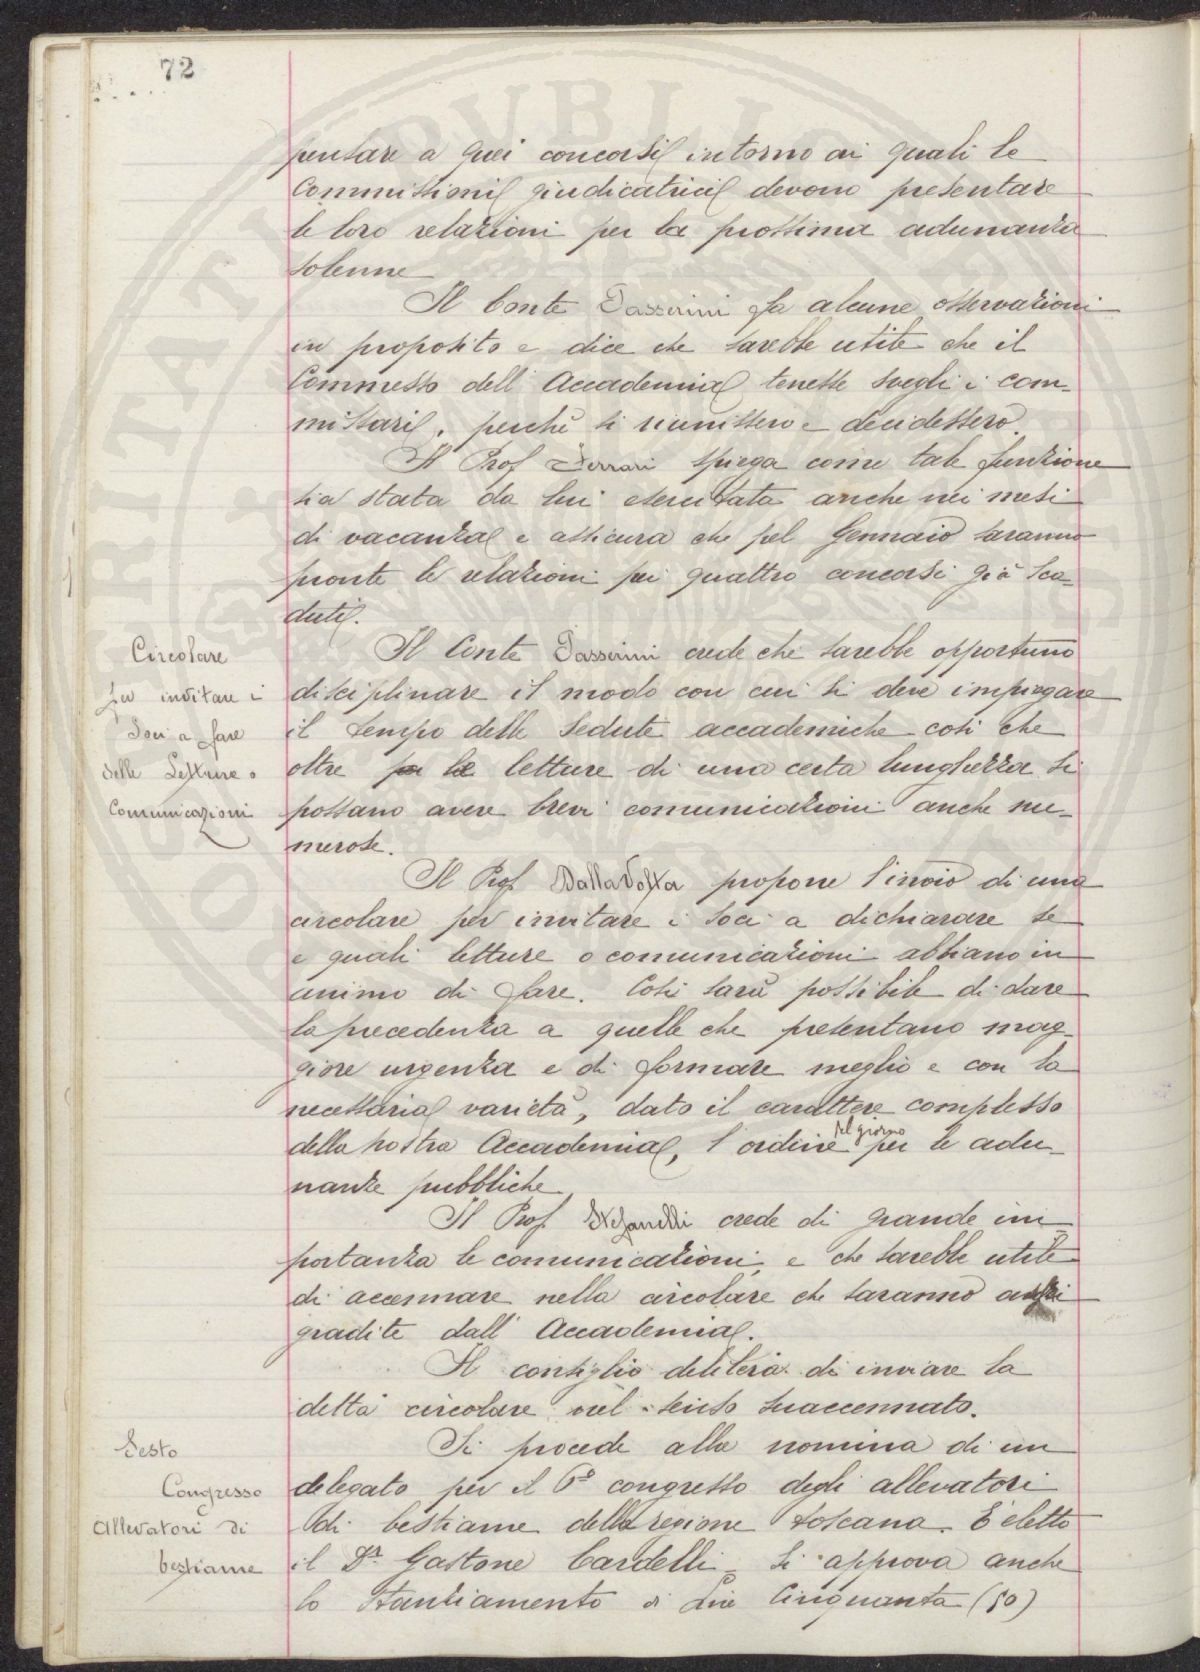 72
pensare a quei concorsi intorno ai quali le
Commissioni giudicatrici devono presentare
le loro relazioni per la prossima adunanza
solenne
Il Conte Passerini fa alcune osservazioni
in proposito e dice che sarebbe utile che il
Commesso dell'Accademia tenesse svegli i com-
missari, perchè si riunissero e decidessero.
Il Prof Ferrari spiega come tale funzione
sia stata da lui esercitata anche nei mesi
di vacanza e assicura che pel Gennaio saranno
pronte le relazioni pei quattro concorsi già sca-
duti.
Circolare
per invitare i
Soci a fare
delle Letture o
Comunicazioni
Il Conte Passerini crede che sarebbe opportuno
disciplinare il modo con cui si deve impiegare
il tempo delle Sedute accademiche così che
oltre le letture di una certa lunghezza si
possano avere brevi comunicazioni anche nu-
merose.
Il Prof. Dalla Volta propone l'invio di una
circolare per invitare i soci a dichiarare se
e quali letture o comunicazioni abbiano in
animo di fare. Così sarà possibile di dare
la precedenza a quelle che presentano mag-
giore urgenza e di formare meglio e con la
necessaria varietà, dato il carattere complesso
della nostra Accademia, l'ordine del giorno per le adu-
nanze pubbliche
Il Prof. Stefanelli crede di grande im-
portanza le comunicazioni, e che sarebbe utile
di accennare nella circolare che saranno assai
gradite dall'Accademia.
Il consiglio delibera di inviare la
detta circolare nel senso suaccennato.
Sesto
Congresso
Allevatori di
bestiame
Si procede alla nomina di un
delegato per il 6º congresso degli allevatori
di bestiame della regione toscana. È eletto
il Dr. Gastone Cardelli - Si approva anche
lo stanziamento di Lire Cinquanta (50)